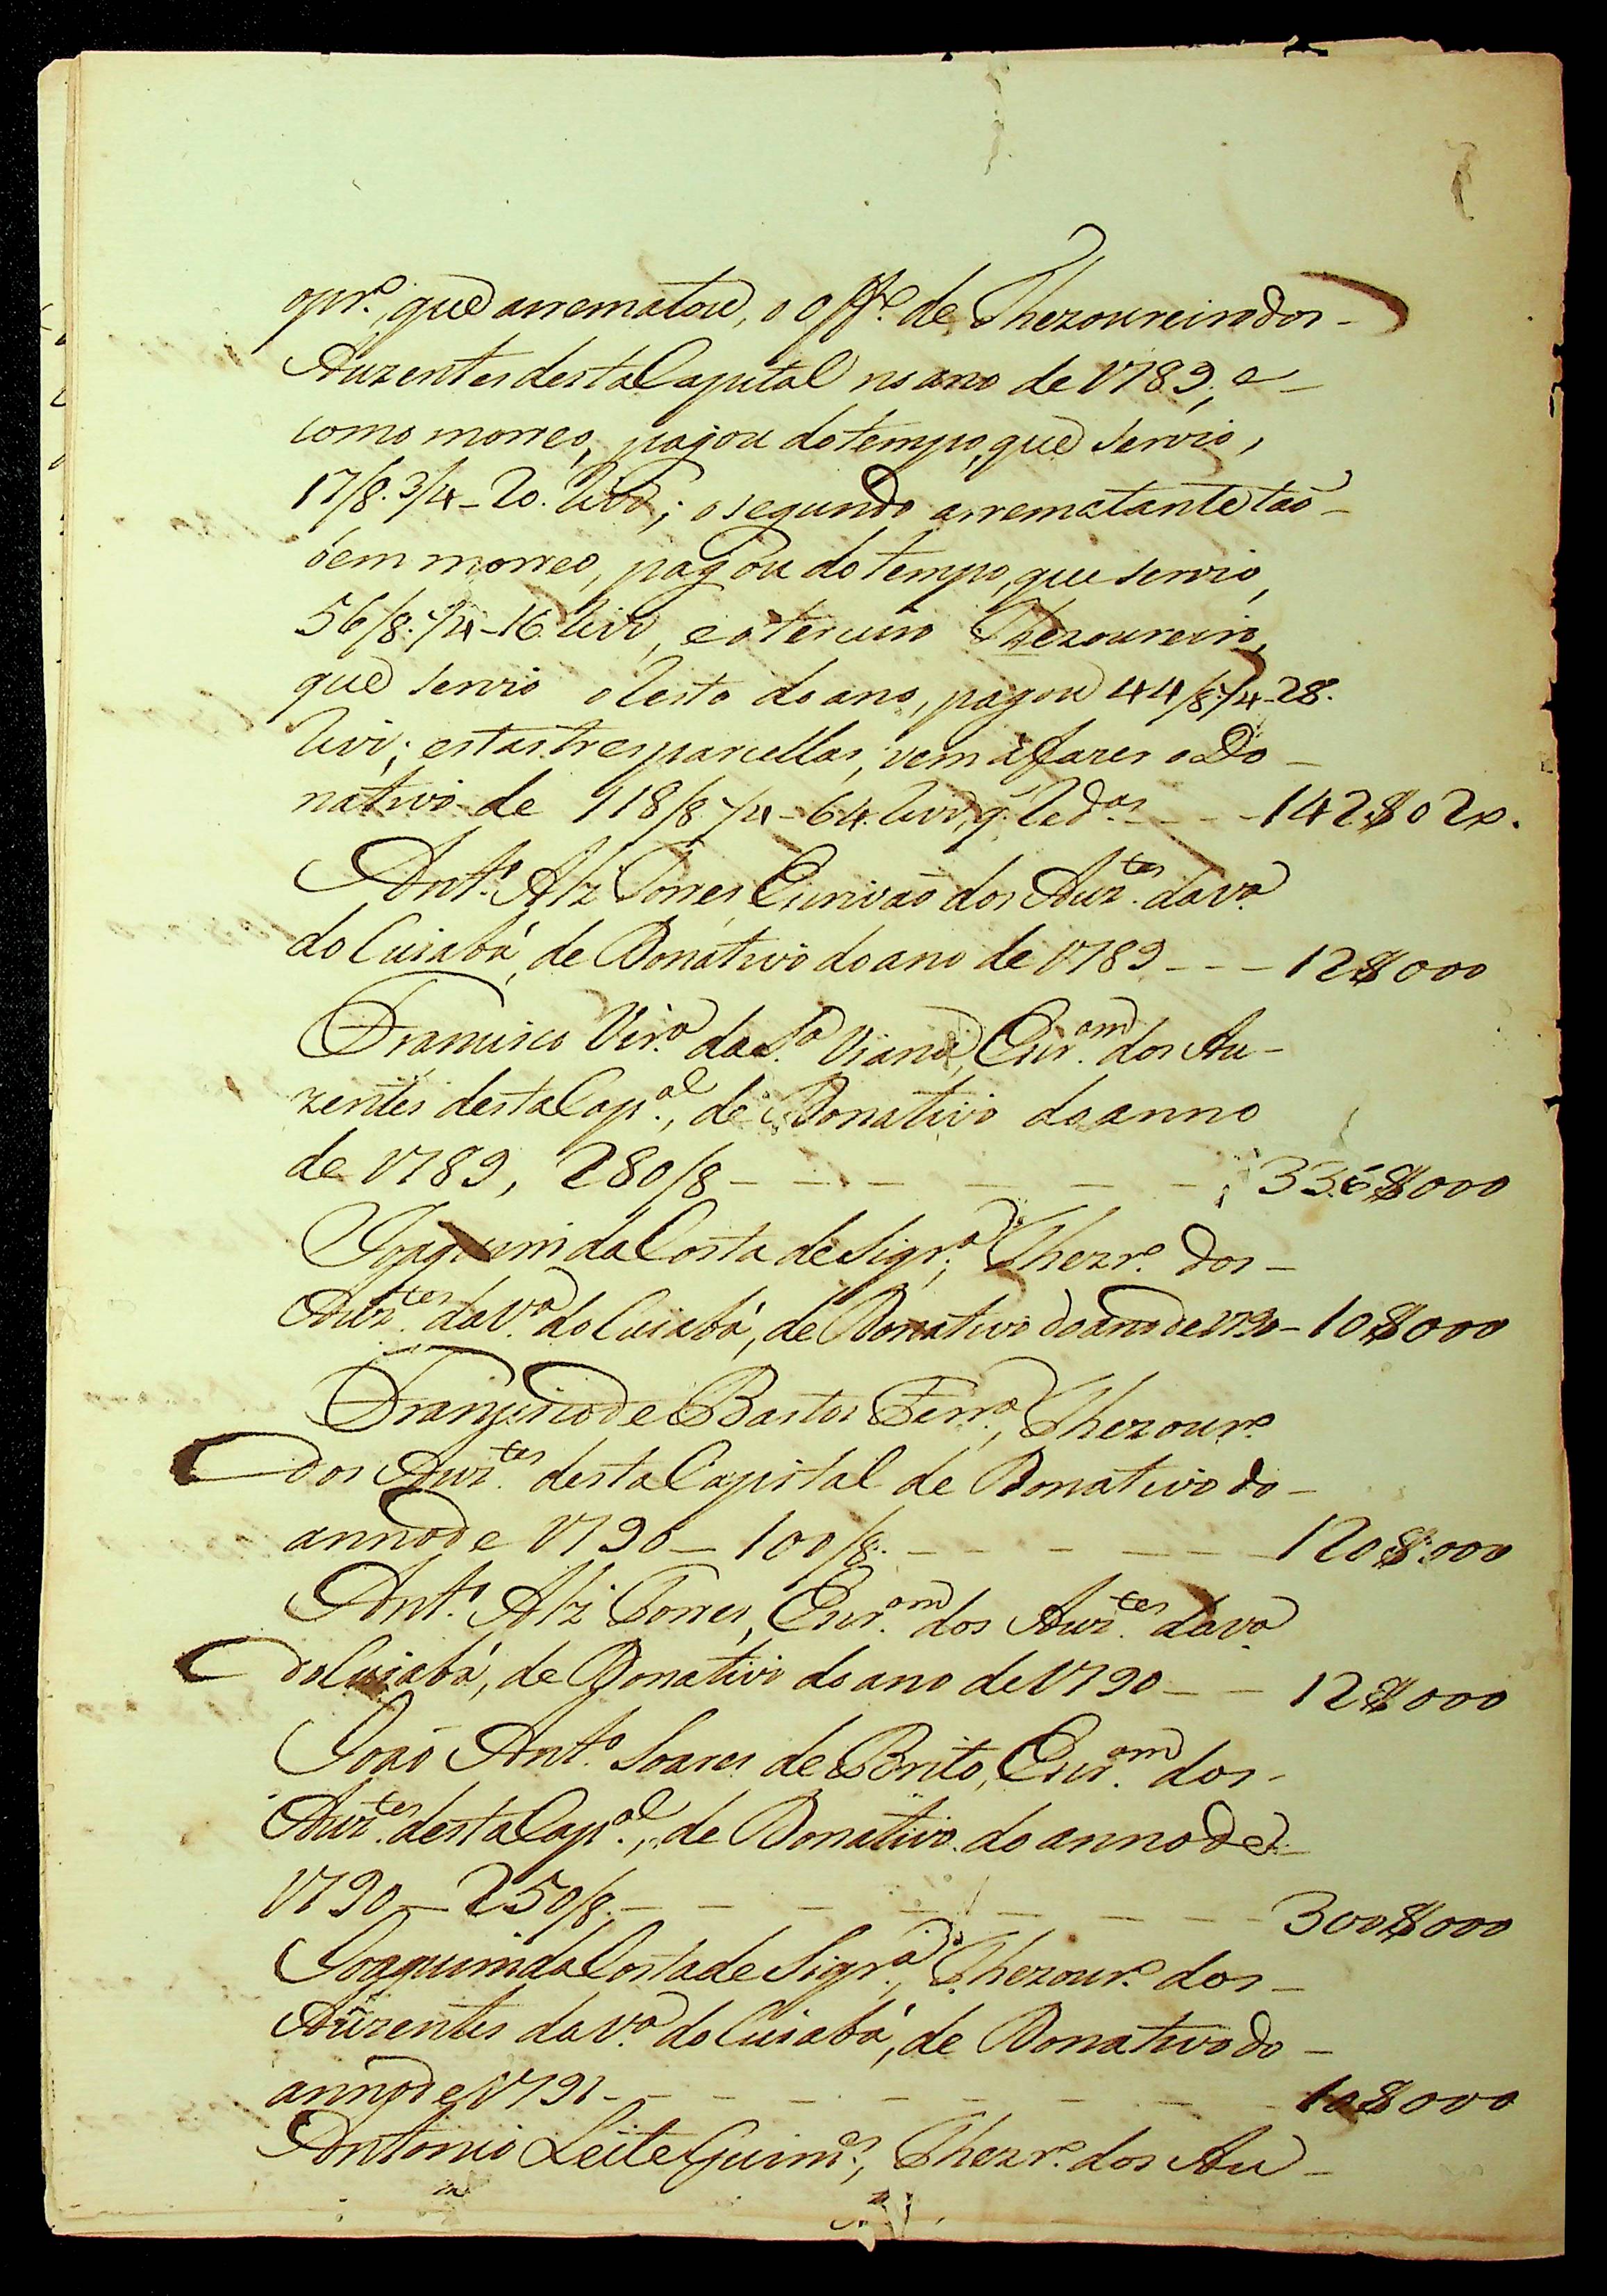 opr.º, que arrematou, o Off.º de Thezoureiro dos -
Auzentes desta Capital no ano de 1789; e -
como morreo, pagou do tempo, que servio,
17/8.ª 3/4 - 20. ; o segundo arrematante tão -
bem morreo, pagou do tempo, que servio,
56/8.ª /4 - 16 , e o terceiro Thezoureiro,
que servio o resto do ano, pagou 44/8.ª /4 - 28.
; estas tres parcellas, vem á fazer o Do -
nativo de 118/8.ª /4 - 64. , q. - - - 142$02 .
Ant.º Alz Torres, Escrivão dos Auz.tes da V.ª
do Cuiabá, de Donativo do ano de 1789 - - - 12$000
Francisco Vir.ª da S.ª Viana, Escr.am dos Au -
zentes desta Cap.al, de Donativo do anno
de 1789, 280/8 - - - - - - - 336$000
Joaquim da Costa de Siqr.ª, Thezr.º dos -
Auz.tes da V.ª do Cuiabá, de Donativo do ano de 1790 - 10$000
Francisco de Bastos Ferr.ª, Thezour.º
dos Auz.tes desta Capital de Donativo do -
anno de 1790 - 100/8.ª - - - - - - 120$000
Ant.º Alz Torres, Escr.am dos Auz.tes da V.ª
do Cuiabá, de Donativo do ano de 1790 - - 12$000
João Ant.º Soares de Brito, Escr.am dos -
Auz.tes desta Cap.al, de Donativo do anno de -
1790 - 250/8. - - - - - - - - 300$000
Joaquim da Costa de Siqr.ª, Thezour.º dos -
Auzentes da V.ª do Cuiabá, de Donativo do -
anno de 1791 - - - - - - - - 10$000
Antonio Leite Guim.es, Thezr.º dos Au -